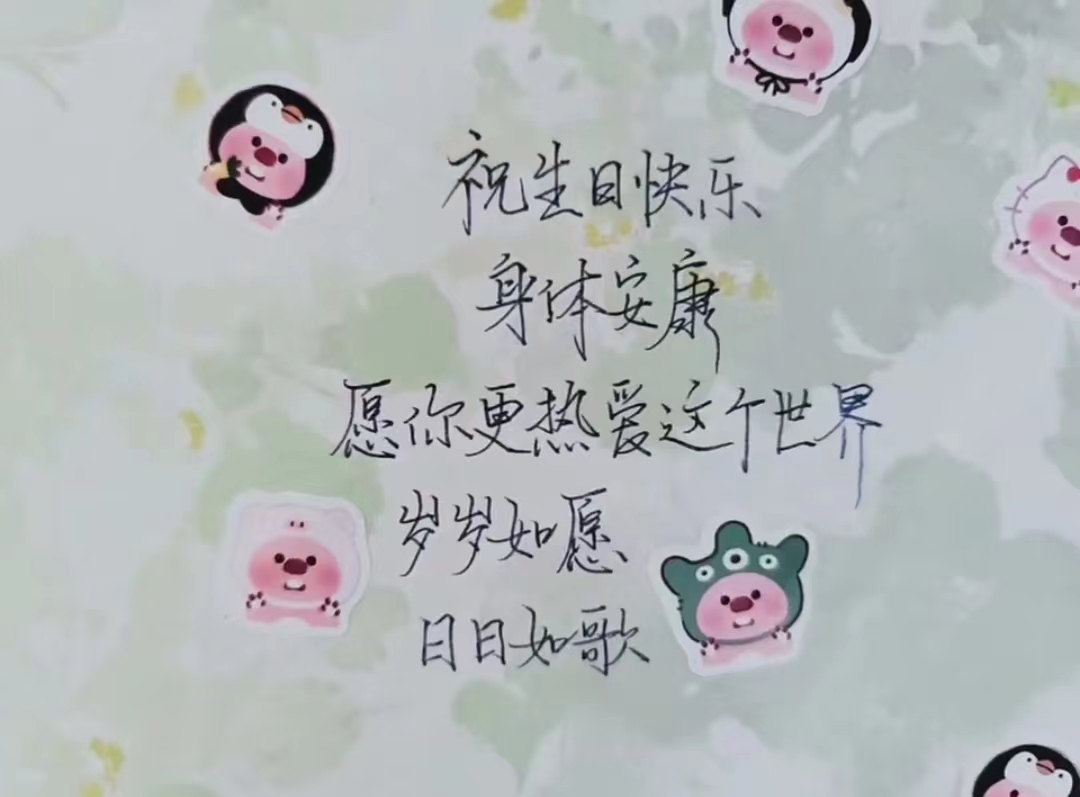 祝生日快乐
身体安康
愿你更热爱这个世界
岁岁如愿
日日如歌